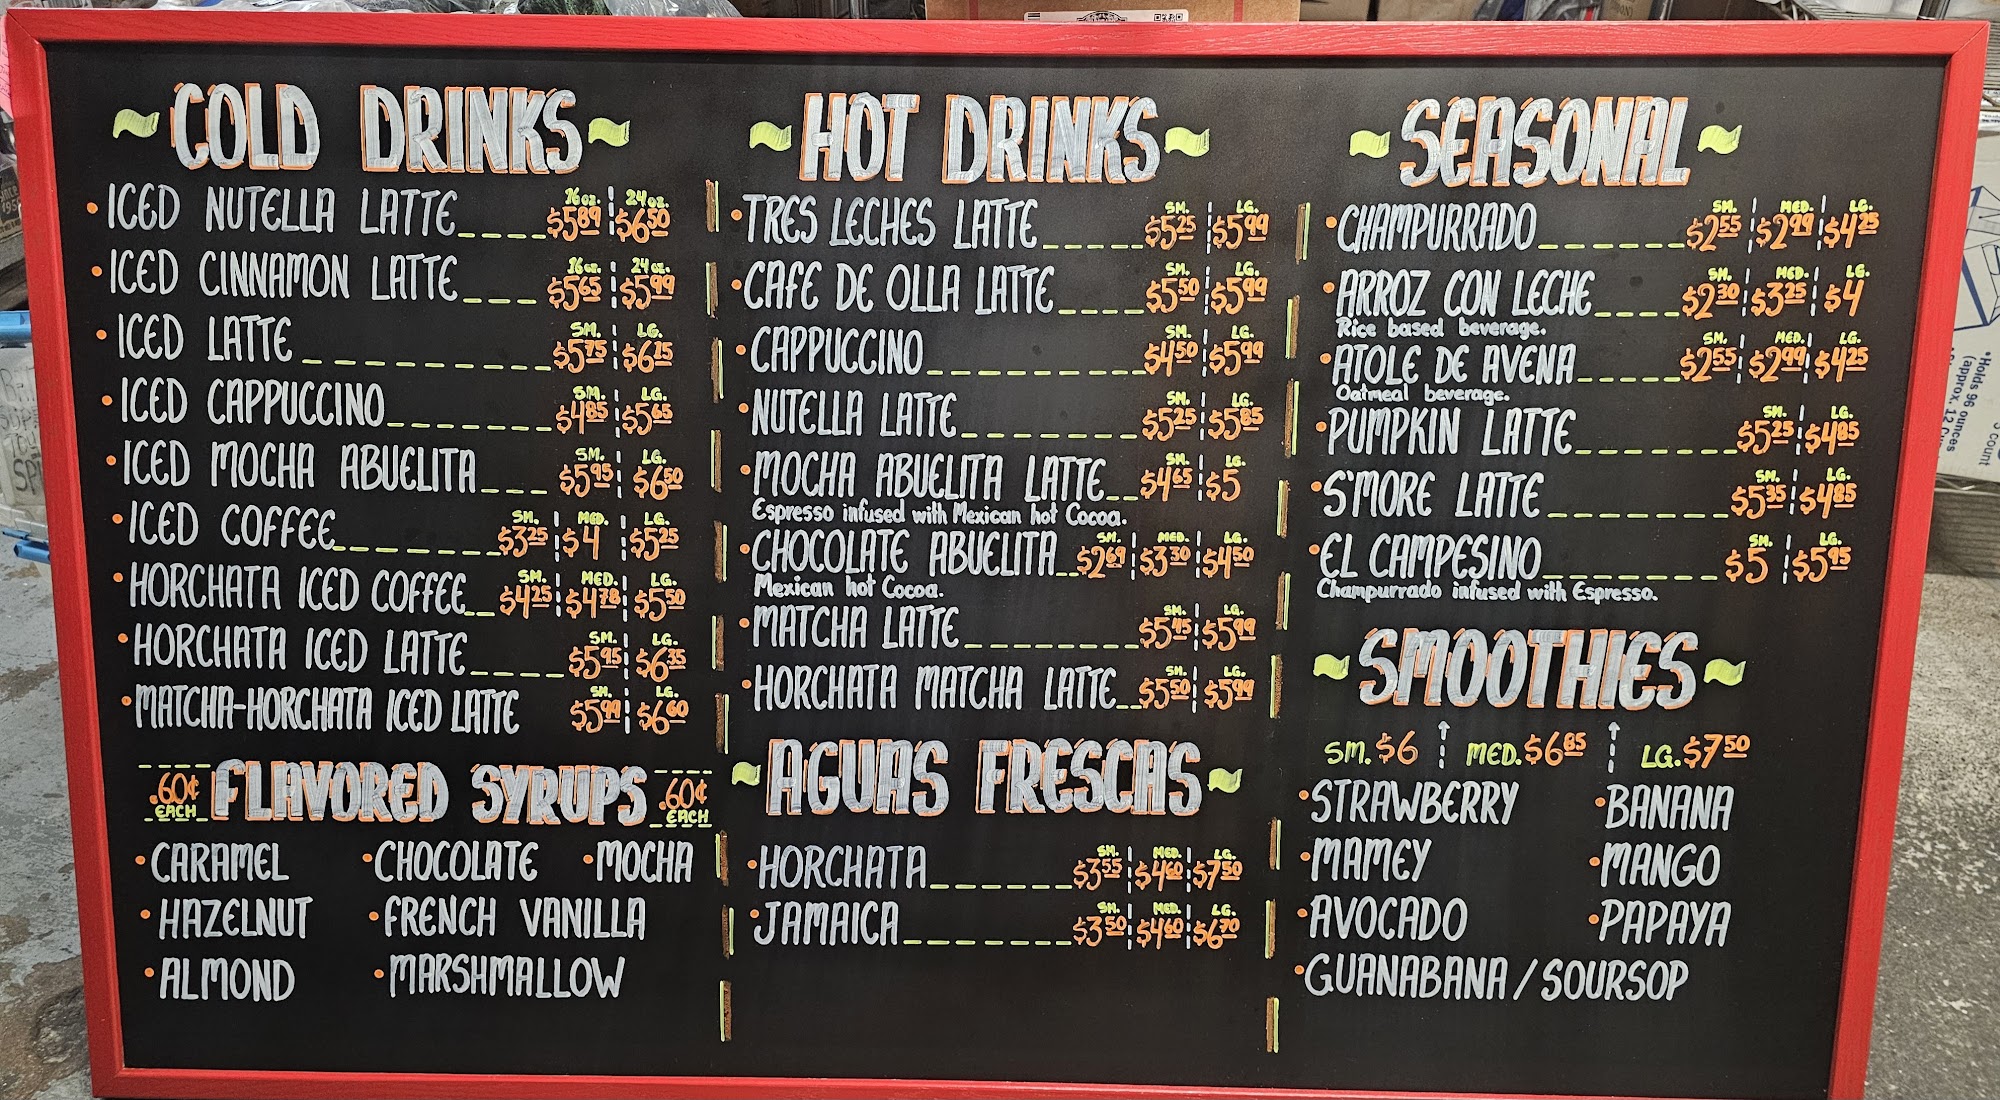 COLD DRINKS
16oz. 24oz.
ICED NUTELLA LATTE $5.89 $6.50
16oz. 24oz.
ICED CINNAMON LATTE $5.65 $5.99
SM. LG.
ICED LATTE $5.75 $6.25
SM. LG.
ICED CAPPUCCINO $4.85 $5.65
SM. LG.
ICED MOCHA ABUELITA $5.95 $6.50
SM. MED. LG.
ICED COFFEE $3.25 $4 $5.25
SM. MED. LG.
HORCHATA ICED COFFEE $4.25 $4.78 $5.50
SM. LG.
HORCHATA ICED LATTE $5.95 $6.35
SM. LG.
MATCHA-HORCHATA ICED LATTE $5.99 $6.60
.60¢ EACH FLAVORED SYRUPS .60¢ EACH
CARAMEL CHOCOLATE MOCHA
HAZELNUT FRENCH VANILLA
ALMOND MARSHMALLOW
HOT DRINKS
SM. LG.
TRES LECHES LATTE $5.25 $5.99
SM. LG.
CAFE DE OLLA LATTE $5.50 $5.99
SM. LG.
CAPPUCCINO $4.50 $5.99
SM. LG.
NUTELLA LATTE $5.25 $5.85
SM. LG.
MOCHA ABUELITA LATTE $4.65 $5
Espresso infused with Mexican hot Cocoa.
SM. MED. LG.
CHOCOLATE ABUELITA $2.69 $3.30 $4.50
Mexican hot Cocoa.
SM. LG.
MATCHA LATTE $5.45 $5.99
SM. LG.
HORCHATA MATCHA LATTE $5.50 $5.99
AGUAS FRESCAS
SM. MED. LG.
HORCHATA $3.55 $4.60 $7.50
SM. MED. LG.
JAMAICA $3.50 $4.60 $6.70
SEASONAL
SM. MED. LG.
CHAMPURRADO $2.55 $2.99 $4.25
SM. MED. LG.
ARROZ CON LECHE $2.30 $3.25 $4
Rice based beverage.
SM. MED. LG.
ATOLE DE AVENA $2.55 $2.99 $4.25
Oatmeal beverage.
SM. LG.
PUMPKIN LATTE $5.25 $4.85
SM. LG.
S'MORE LATTE $5.35 $4.85
SM. LG.
EL CAMPESINO $5 $5.95
Champurrado infused with Espresso.
SMOOTHIES
SM. $6 MED. $6.85 LG. $7.50
STRAWBERRY BANANA
MAMEY MANGO
AVOCADO PAPAYA
GUANABANA / SOURSOP
•Holds 96 ounces